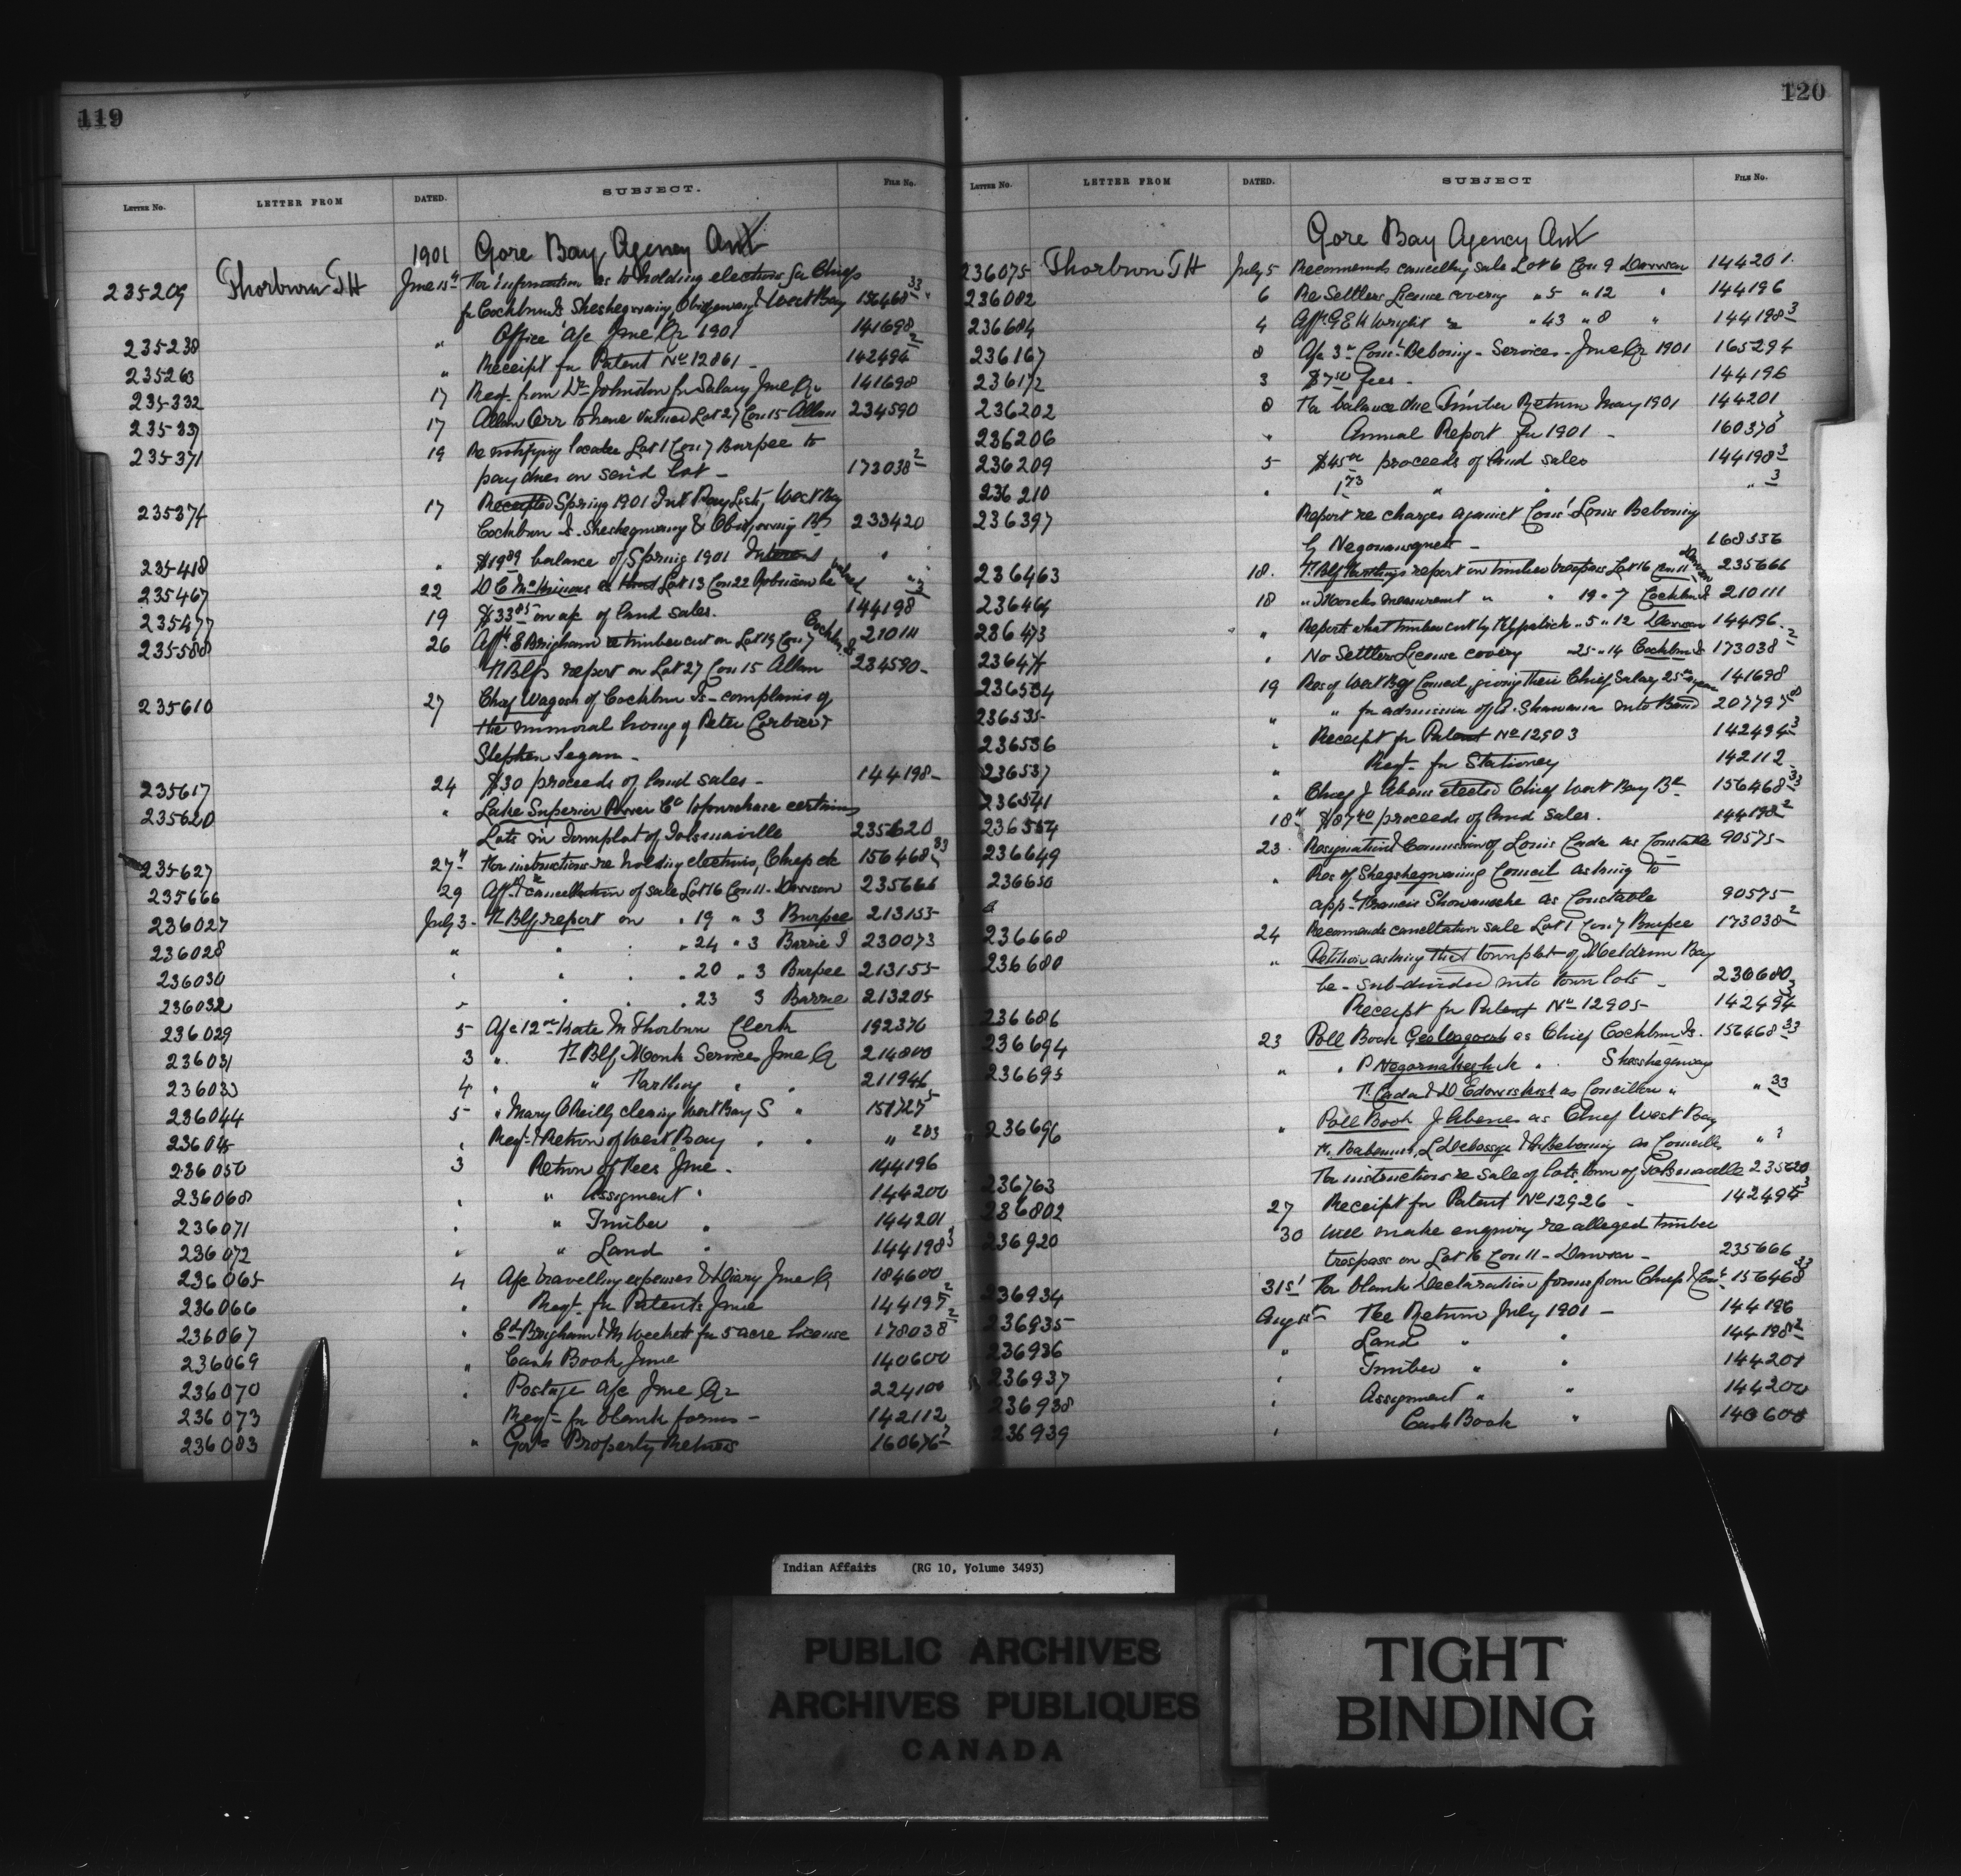 119
LETTER No. LETTER FROM DATED. SUBJECT. FILE No.
1901 Gore Bay Agency Ont
235209 Thorburn J H June 15th For information as to holding elections for Chiefs
for Cockburn Is Sheshegwaning, Obidgewong & West Bay 156468 33
235238 " Office a/c June Qr 1901 141698
235263 " Receipt for Patent No 12861 - 142494 2
235332 17 Reqt. from Dr Johnston for Salary June Qr 141698
235337 17 Allan Orr to have valued Lot 27 Con 15 Allan 234590
235371 19 Re notifying locatee Lot 1 Con 7 Burpee to
pay dues on said lot - 173038 2
235374 17 Receipted Spring 1901 Int Pay Lists, West Bay
Cockburn Is. Sheshegwaning & Obidgewong Bds 233420
235418 " $19.89 balance of Spring 1901 Interest "
235467 22 Lot 13 Con 22 Robinson be valued
235477 19 $33.85 on a/c of land sales. 144198 3
235588 26 Afft E Bingham re timber cut on Lot 19 Con 7 Cockbn Is 210111
Fr Blfs report on Lot 27 Con 15 Allan 234590
235610 27 Chief Wagosh of Cockburn Is - complains of
the immoral living of Peter Corbiere &
Stephen Segam -
235617 24 $30 proceeds of land sales - 144198
235620 " Lake Superior Power Co to purchase certain
Lots in Townplot of Tolsmaville 235620
235627 27th For instructions re holding elections, Chiefs etc 156468 33
235666 29 Afft re cancellation of sale Lot 16 Con 11 - Dawson 235666
236027 July 3 - Fr Blfs report on " 19 " 3 Burpee 213155
236028 " " " " 24 " 3 Barrie I 230073
236030 " " " " 20 " 3 Burpee 213155
236032 " " " " 23 3 Barrie 213205
236029 5 A/c 12.00 Kate M Thorburn Clerk 192376
236031 3 " Fr Blf Monk Services June Q 214800
236033 4 " " " " 211946
236044 5 " Mary O'Reilly cleaning West Bay S " 151727 5
236045 " Reqt. & Return of West Bay " " " 203
236050 3 Return of Fees June - 144196
236068 " " Assignment " 144200
236071 " " Timber " 144201
236072 " " Land " 144198 3
236065 4 A/c travelling expenses & Diary June Q 184600
236066 " Reqt. for Patents June 144197 2
236067 " Ed Bingham & for 5 acre license 178038 2
236069 " Cash Book June 140600
236070 " Postage a/c June Qr 224100
236073 Reqt - for blank forms - 142112
236083 " Govt Property Return 160676 7
120
LETTER No. LETTER FROM DATED. SUBJECT FILE No.
Gore Bay Agency Ont
236075 Thorburn J H July 5 Recommends cancelling sale Lot 6 Con 9 Dawson 144201
236082 6 Re Settlers License covering " 5 " 12 " 144196
236684 4 Afft. G E H Wright re " 43 " 8 " 144198 3
236167 8 A/c 3.00 Const. Beboning - Services - June Qr 1901 165294
236172 3 $7.50 fees - 144196
236202 8 For balance due Timber Return May 1901 144201
236206 " Annual Report for 1901 - 160370
236209 5 $45.00 proceeds of land sales 144198 3
236210 " 1.73 " " " 3
236397 Report re charges against Cons' Louis Beboning
by - 168336
236463 18. Fr Blf report on timber trespass Lot 16 Con 11 Dawson 235666
236464 18 " Monck measurement " " 19 " 7 Cockbn Is 210111
236473 " Reports what timber cut by Kilpatrick " 5 " 12 Dawson 144196
236474 " No Settlers License covering " 25 " 14 Cockbn Is 173038 2
236534 19 Res of West Bay Council, giving their Chief Salary 25.00 a year 141698
236535 " " for admission of A. Shawana into Band 207795
236536 " Receipt for Patent No 12903 142494 3
236537 " Reqt. for Stationery 142112
236541 " Chief J Abens elected Chief West Bay Bd 156468 33
236554 18th $87.40 proceeds of land sales. 144198 2
236649 23 Resignation & Commission of Louis Cada as Constable 90575
236650 " Res of Shegshegwaning Council asking to
appt Francis as Constable 90575
236668 24 Recommends cancellation sale Lot 1 Con 7 Burpee 173038 2
236680 " Petition asking that townplot of Meldrum Bay
be - sub-divided into town lots - 236680
236686 Receipt for Patent No 12905 142494 3
236694 23 Poll Book Geo Wagosh as Chief Cockburn Is. 156468 33
236695 " " P as " Sheshegwaning
F. Cada & D as Concillors " " 33
236696 " Poll Book J Abens as Chief West Bay
L Debassige & Beboning as Concillors "
236763 For instructions re sale of lots town of Tolsmaville 235620
236802 27 Receipt for Patent No 12926 - 142494 3
236920 30 Will make enquiry re alleged timber
trespass on Lot 16 Con 11 - Dawson - 235666
236934 31st For blank Declaration forms from Chief & Conc 156468 33
236935 Aug 1st Fee Return July 1901 - 144196
236936 " Land " " 144198 2
236937 " Timber " " 144201
236938 " Assignment " " 144200
236939 " Cash Book " 140600
Indian Affairs (RG 10, Volume 3493)
PUBLIC ARCHIVES
ARCHIVES PUBLIQUES
CANADA
TIGHT
BINDING